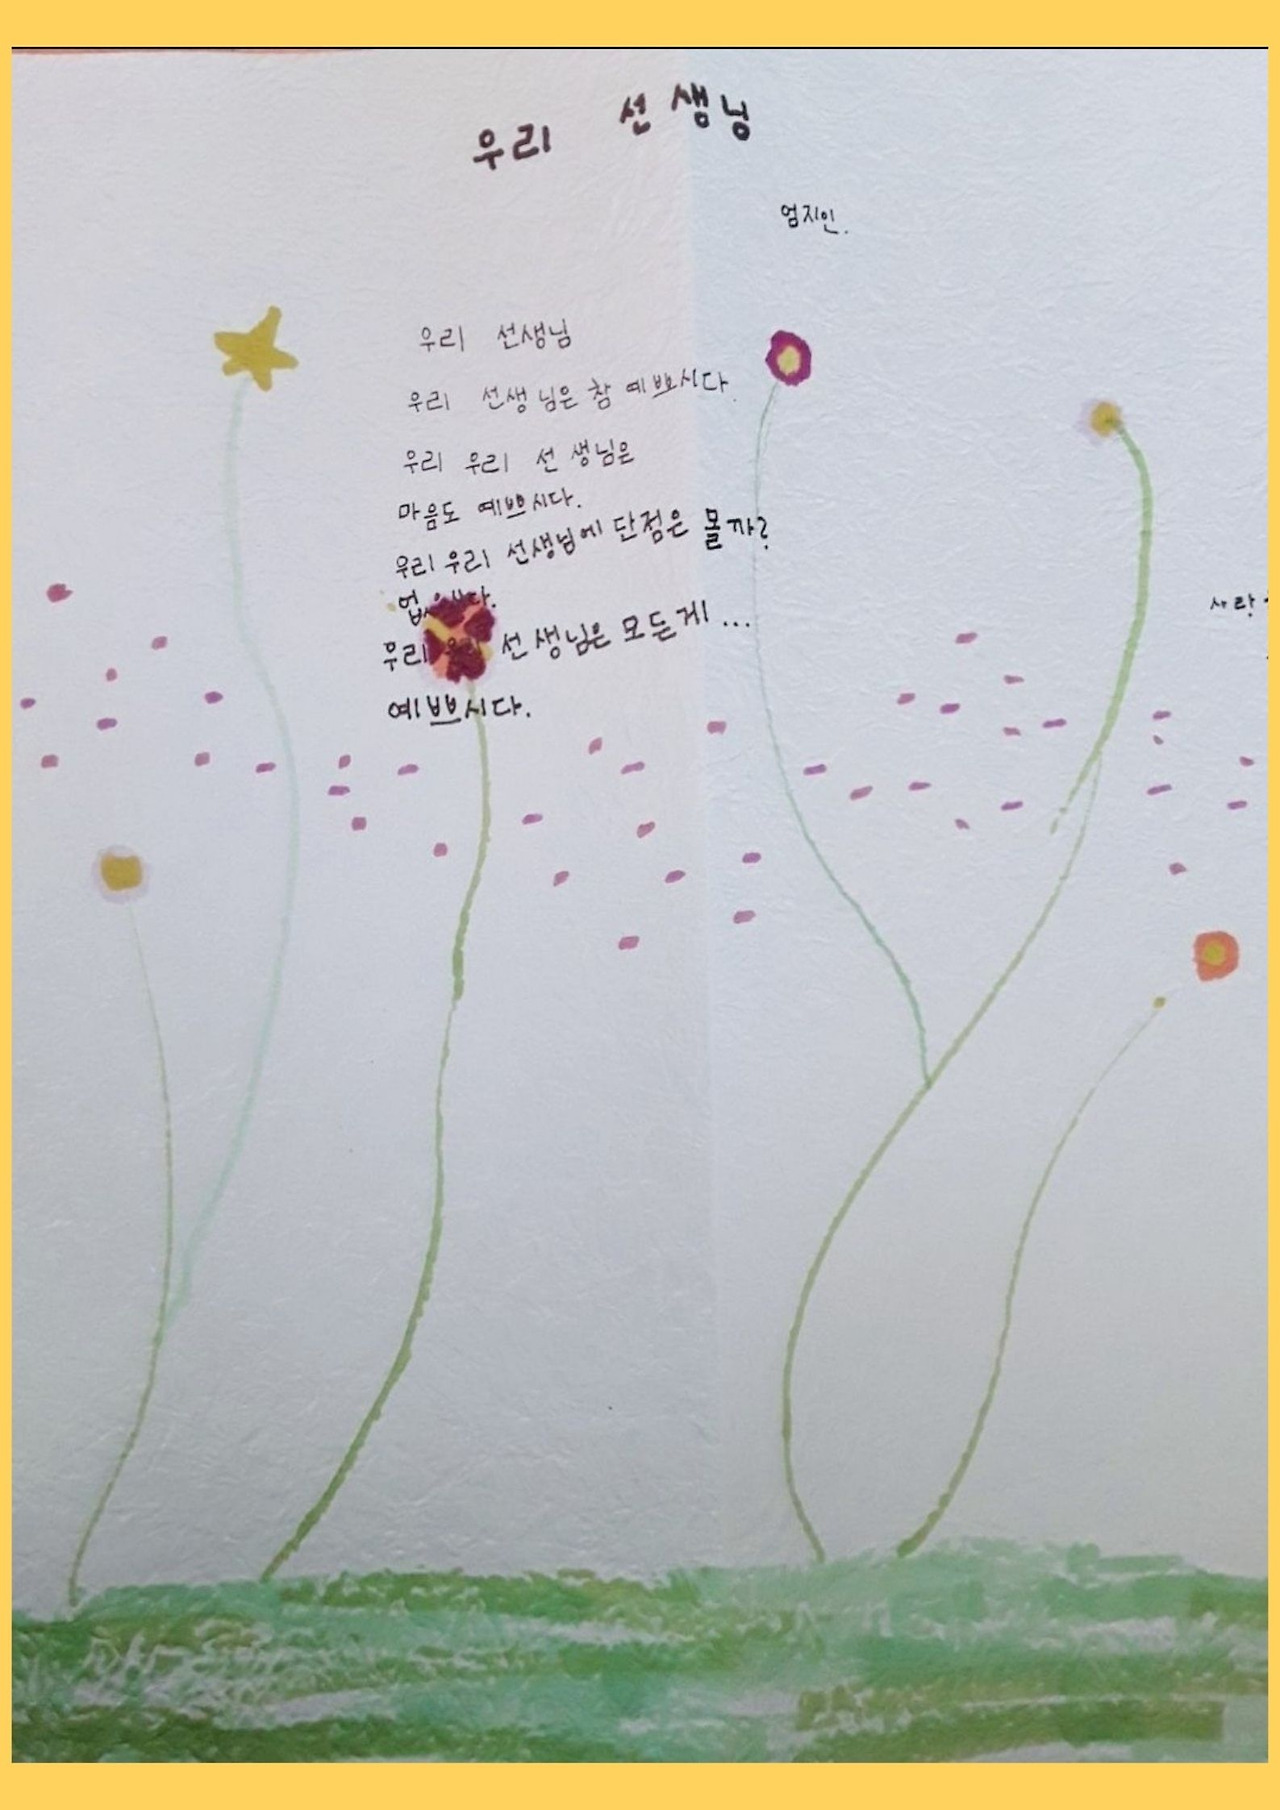 우리 선생님
엄지인.
우리 선생님
우리 선생님은 참 예쁘시다.
우리 우리 선생님은
마음도 예쁘시다.
우리 우리 선생님에 단점은 몰까?
없으시다.
우리 우리 선생님은 모든게...
예쁘시다.
사랑